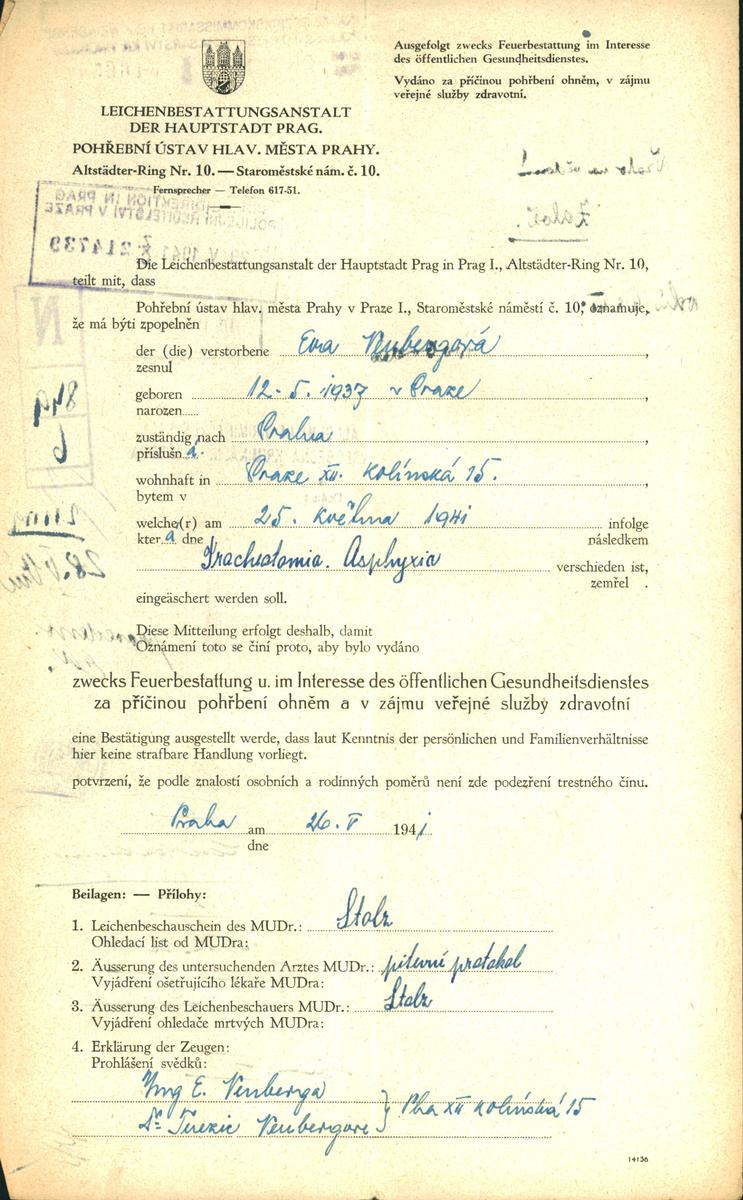 Ausgefolgt zwecks Feuerbestattung im Interesse
des öffentlichen Gesundheitsdienstes.
Vydáno za příčinou pohřbení ohněm, v zájmu
veřejné služby zdravotní.
LEICHENBESTATTUNGSANSTALT
DER HAUPTSTADT PRAG.
POHŘEBNÍ ÚSTAV HLAV. MĚSTA PRAHY.
Altstädter-Ring Nr. 10. — Staroměstské nám. č. 10.
Fernsprecher — Telefon 617-51.
214739
Die Leichenbestattungsanstalt der Hauptstadt Prag in Prag I., Altstädter-Ring Nr. 10,
teilt mit, dass
Pohřební ústav hlav. města Prahy v Praze I., Staroměstské náměstí č. 10, oznamuje,
že má býti zpopelněn
der (die) verstorbene Eva Neubergová,
zesnul
geboren 12. 5. 1937 v Praze,
narozen
zuständig nach Praha,
příslušn á.
wohnhaft in Praze XII. Kolínská 15.,
bytem v
welche(r) am 25. května 1941 infolge
kter á dne následkem
Tracheotomia. Asphyxia verschieden ist,
zemřel .
eingeäschert werden soll.
Diese Mitteilung erfolgt deshalb, damit
Oznámení toto se činí proto, aby bylo vydáno
zwecks Feuerbestattung u. im Interesse des öffentlichen Gesundheitsdienstes
za příčinou pohřbení ohněm a v zájmu veřejné služby zdravotní
eine Bestätigung ausgestellt werde, dass laut Kenntnis der persönlichen und Familienverhältnisse
hier keine strafbare Handlung vorliegt.
potvrzení, že podle znalostí osobních a rodinných poměrů není zde podezření trestného činu.
Praha am 26. V 1941.
dne
Beilagen: — Přílohy:
1. Leichenbeschauschein des MUDr.: Stolz
Ohledací list od MUDra:
2. Äusserung des untersuchenden Arztes MUDr.: pitevní protokol
Vyjádření ošetřujícího lékaře MUDra:
3. Äusserung des Leichenbeschauers MUDr.: Stolz
Vyjádření ohledače mrtvých MUDra:
4. Erklärung der Zeugen:
Prohlášení svědků:
Ing E. Neuberga
Neubergové } Pha XII Kolínská 15
14136